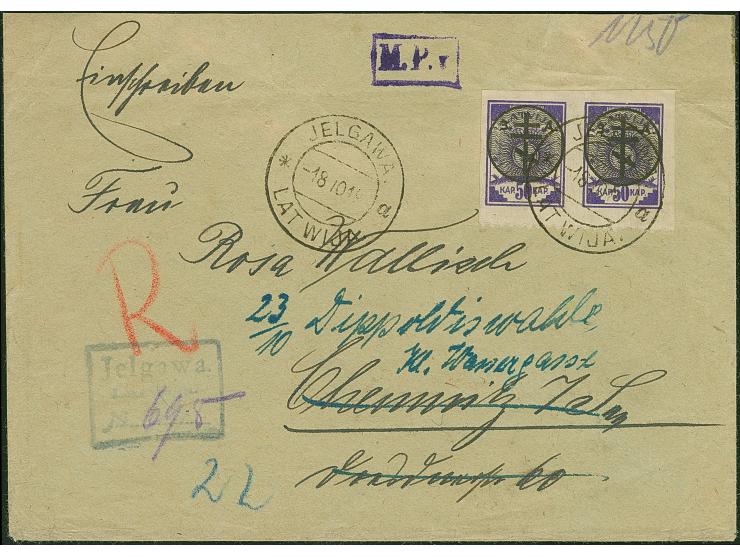 1157
M.P.
Einschreiben
JELGAWA. a
-18 10 19
LATWIJA
50
KAP. KAP.
50
KAP. KAP.
JELGAWA. a
-18
LATWIJA.
Frau
Rosa Wallisch
R
23/10 Dippoldiswalde,
Kl. Wassergasse
Chemnitz i. Sa.
Jelgawa.
№ 695
Dresdnerstr 60
22